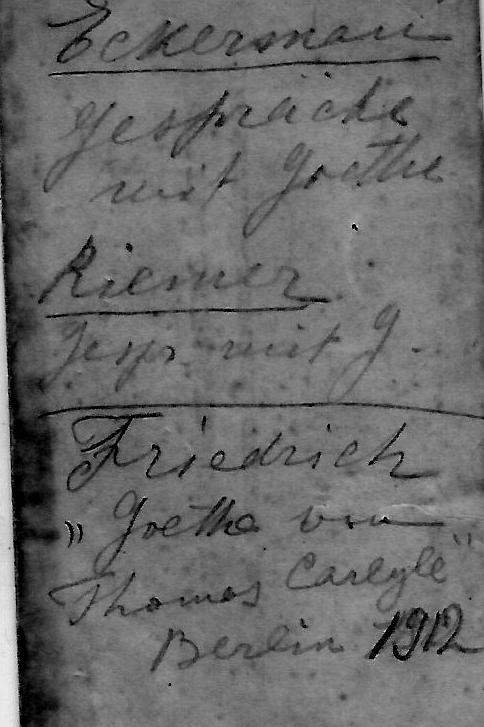 Eckermann
Gespräche
mit Goethe
Riemer
Gespr. mit G.
Friedrich
"Goethe von
Thomas Carlyle"
Berlin 1912